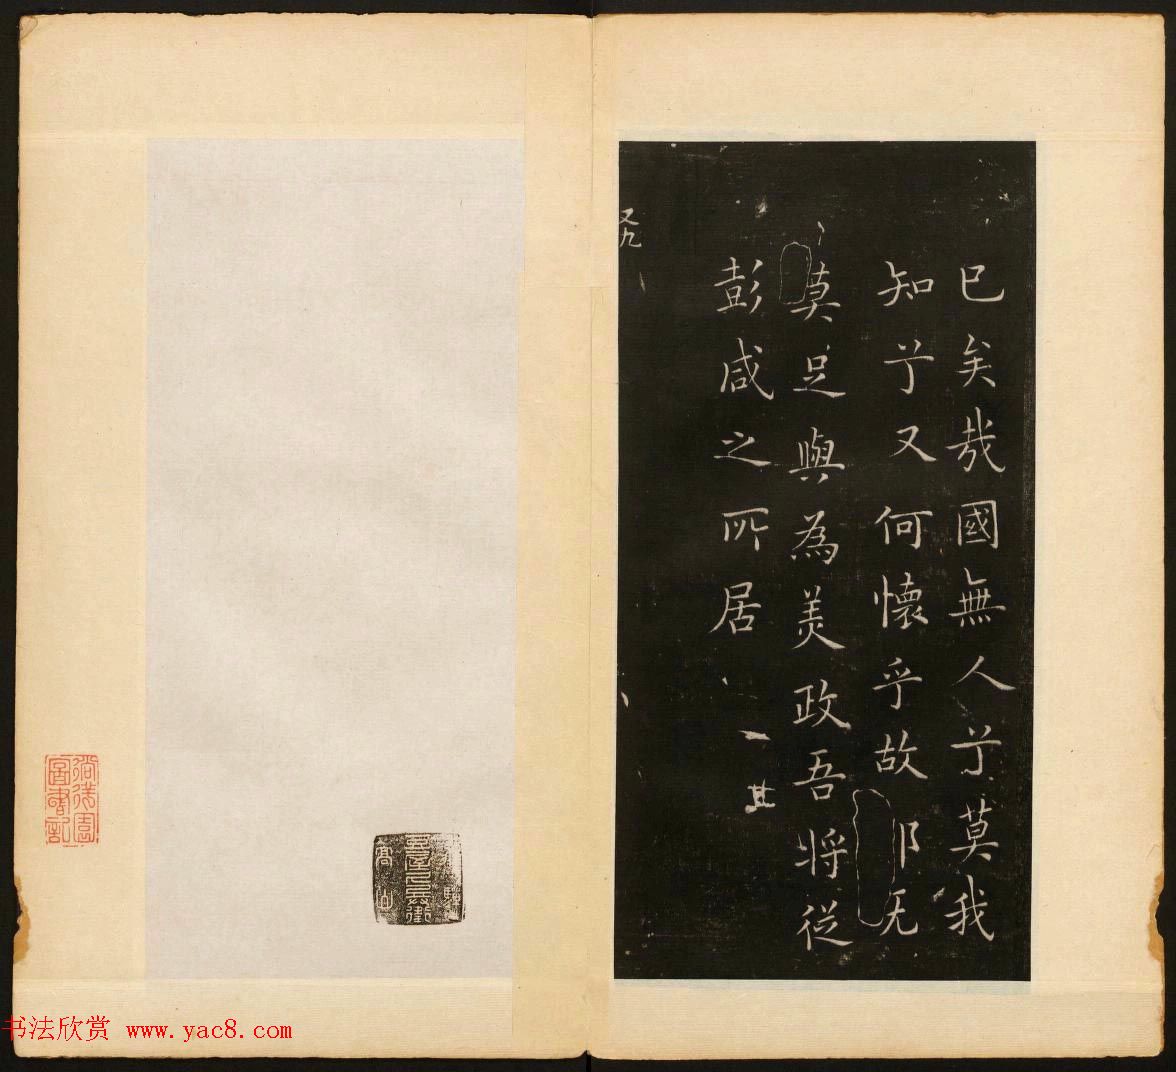 已矣哉國無人兮莫我
知兮又何懷乎故都无
莫足與為美政吾將從
彭咸之所居
又九
其
書法欣賞 www.yac8.com